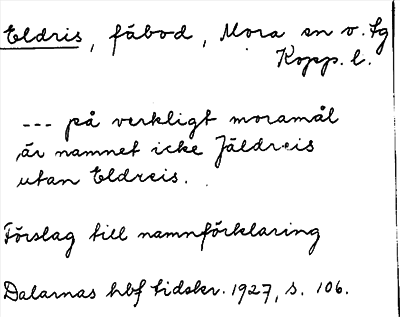 Eldris, fäbod, Mora sn v. Lg
Kopp. l.
--- på verkligt moramål
är namnet icke Jäldreis
utan Eldreis.
Förslag till namnförklaring
Dalarnas hbf tidskr. 1927, s. 106.